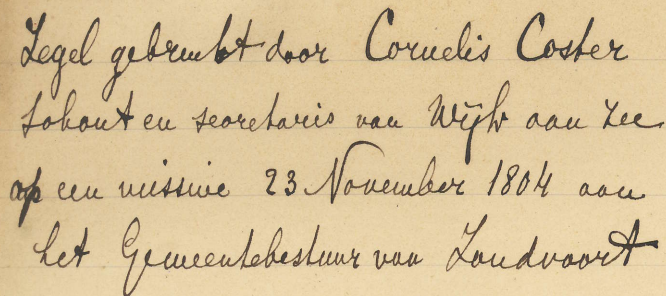 Zegel gebruikt door Cornelis Coster
Schout en secretaris van Wijk aan Zee
op een missive 23 November 1804 aan
het Gemeentebestuur van Zandvoort